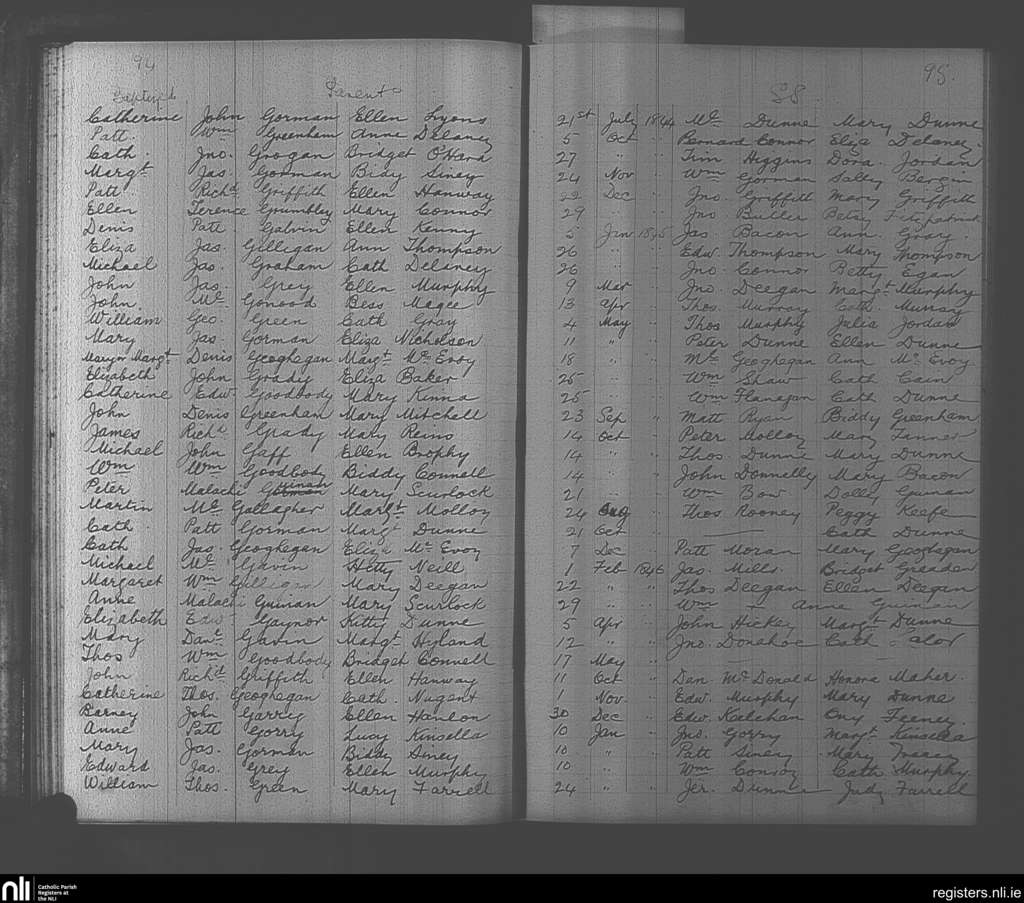 94
Baptized Parents
Catherine John Gorman Ellen Lyons
Patt. Wm Greenham Anne Delaney
Cath. Jno. Grogan Bridget O'Hara
Margt. Jas. Gorman Bidy Siney
Patt. Richd. Griffith Ellen Hanway
Ellen Terence Grumbley Mary Connor
Denis Patt. Galvin Ellen Kenny
Eliza Jas. Gilligan Ann Thompson
Michael Jas. Graham Cath Delaney
John Jas. Grey Ellen Murphy
John Ml. Gonood Bess Magee
William Geo. Green Cath Gray
Mary Jas. Gorman Eliza Nicholson
Mary Margt. Denis Geoghegan Margt. Mc Evoy
Elizabeth John Grady Eliza Baker
Catherine Edw. Goodbody Mary Kinna
John Denis Greenhan Mary Mitchell
James Richd. Grady Mary Reins
Michael John Gaff Ellen Brophy
Wm Wm Goodbody Biddy Connell
Peter Malachi Guinan Mary Scurlock
Martin Ml. Gallagher Margt. Molloy
Cath. Patt Gorman Margt. Dunne
Cath Jas. Geoghegan Eliza Mc Evoy
Michael Ml. Gavin Hetty Neill
Margaret Wm Gilligan Mary Deegan
Anne Malachi Guinan Mary Scurlock
Elizabeth Edw. Gaynor Kitty Dunne
Mary Danl. Gavin Margt. Hyland
Thos Wm Goodbody Bridget Connell
John Richd. Griffith Ellen Hanway
Catherine Thos. Geoghegan Cath. Nugent
Barney John Garrig Ellen Hanlon
Anne Patt Gorry Lucy Kinsella
Mary Jas. Gorman Biddy Siney
Edward Jas. Grey Ellen Murphy
William Thos. Green Mary Farrell
95.
SS
21st July 1844 Ml. Dunne Mary Dunne
5 Oct Bernard Connor Eliza Delaney.
27 " " Tim Higgins Dora Jordan
24 Nov " Wm Gorman Salley Bergin
22 Dec " Jno. Griffith Mary Griffith
29 " " Jno. Butler Betsy Fitzpatrick
5 Jan 1845 Jas. Bacon Ann Gray.
26 " " Edw. Thompson Mary Thompson
26 " " Jno. Connor Betty Egan
9 Mar " Jno. Deegan Margt. Murphy
13 Apr " Thos. Murray Cath. Murray
4 May " Thos Murphy Julia Jordan
11 " " Peter Dunne Ellen Dunne
18 " " Ml. Geoghegan Ann Mc Evoy
25 " " Wm Shaw Cath Cain
25 " " Wm Flanagan Cath Dunne
23 Sep " Matt Ryan Biddy Greenham
14 Oct " Peter Molloy Mary
14 " " Thos. Dunne Mary Dunne
14 " " John Donnelly Mary Bacon
21 " " Wm Bow Dolly Guinan
24 Aug " Thos Rooney Peggy Keefe
21 Oct " — Cath Dunne
7 Dec " Patt Moran Mary Geoghegan
1 Feb 1846 Jas. Mills Bridget Greaden
22 " " Thos Deegan Ellen Deegan
29 " " Wm — Anne Guinan
5 Apr " John Hickey Margt. Dunne
12 " " Jno. Donahoe Cath
17 May " —
11 Oct " Dan Mc Donald Honora Maher.
1 Nov. " Edw. Murphy Mary Dunne
30 Dec " Edw. Keelehan Ony Feeney.
10 Jan " Jno. Gorry Margt. Kinsella
10 " " Patt Siney Mary
10 " " Wm Conroy Cath Murphy.
24 " " Jer. Dunne Judy Farrell
nli
Catholic Parish
Registers at
the NLI
registers.nli.ie